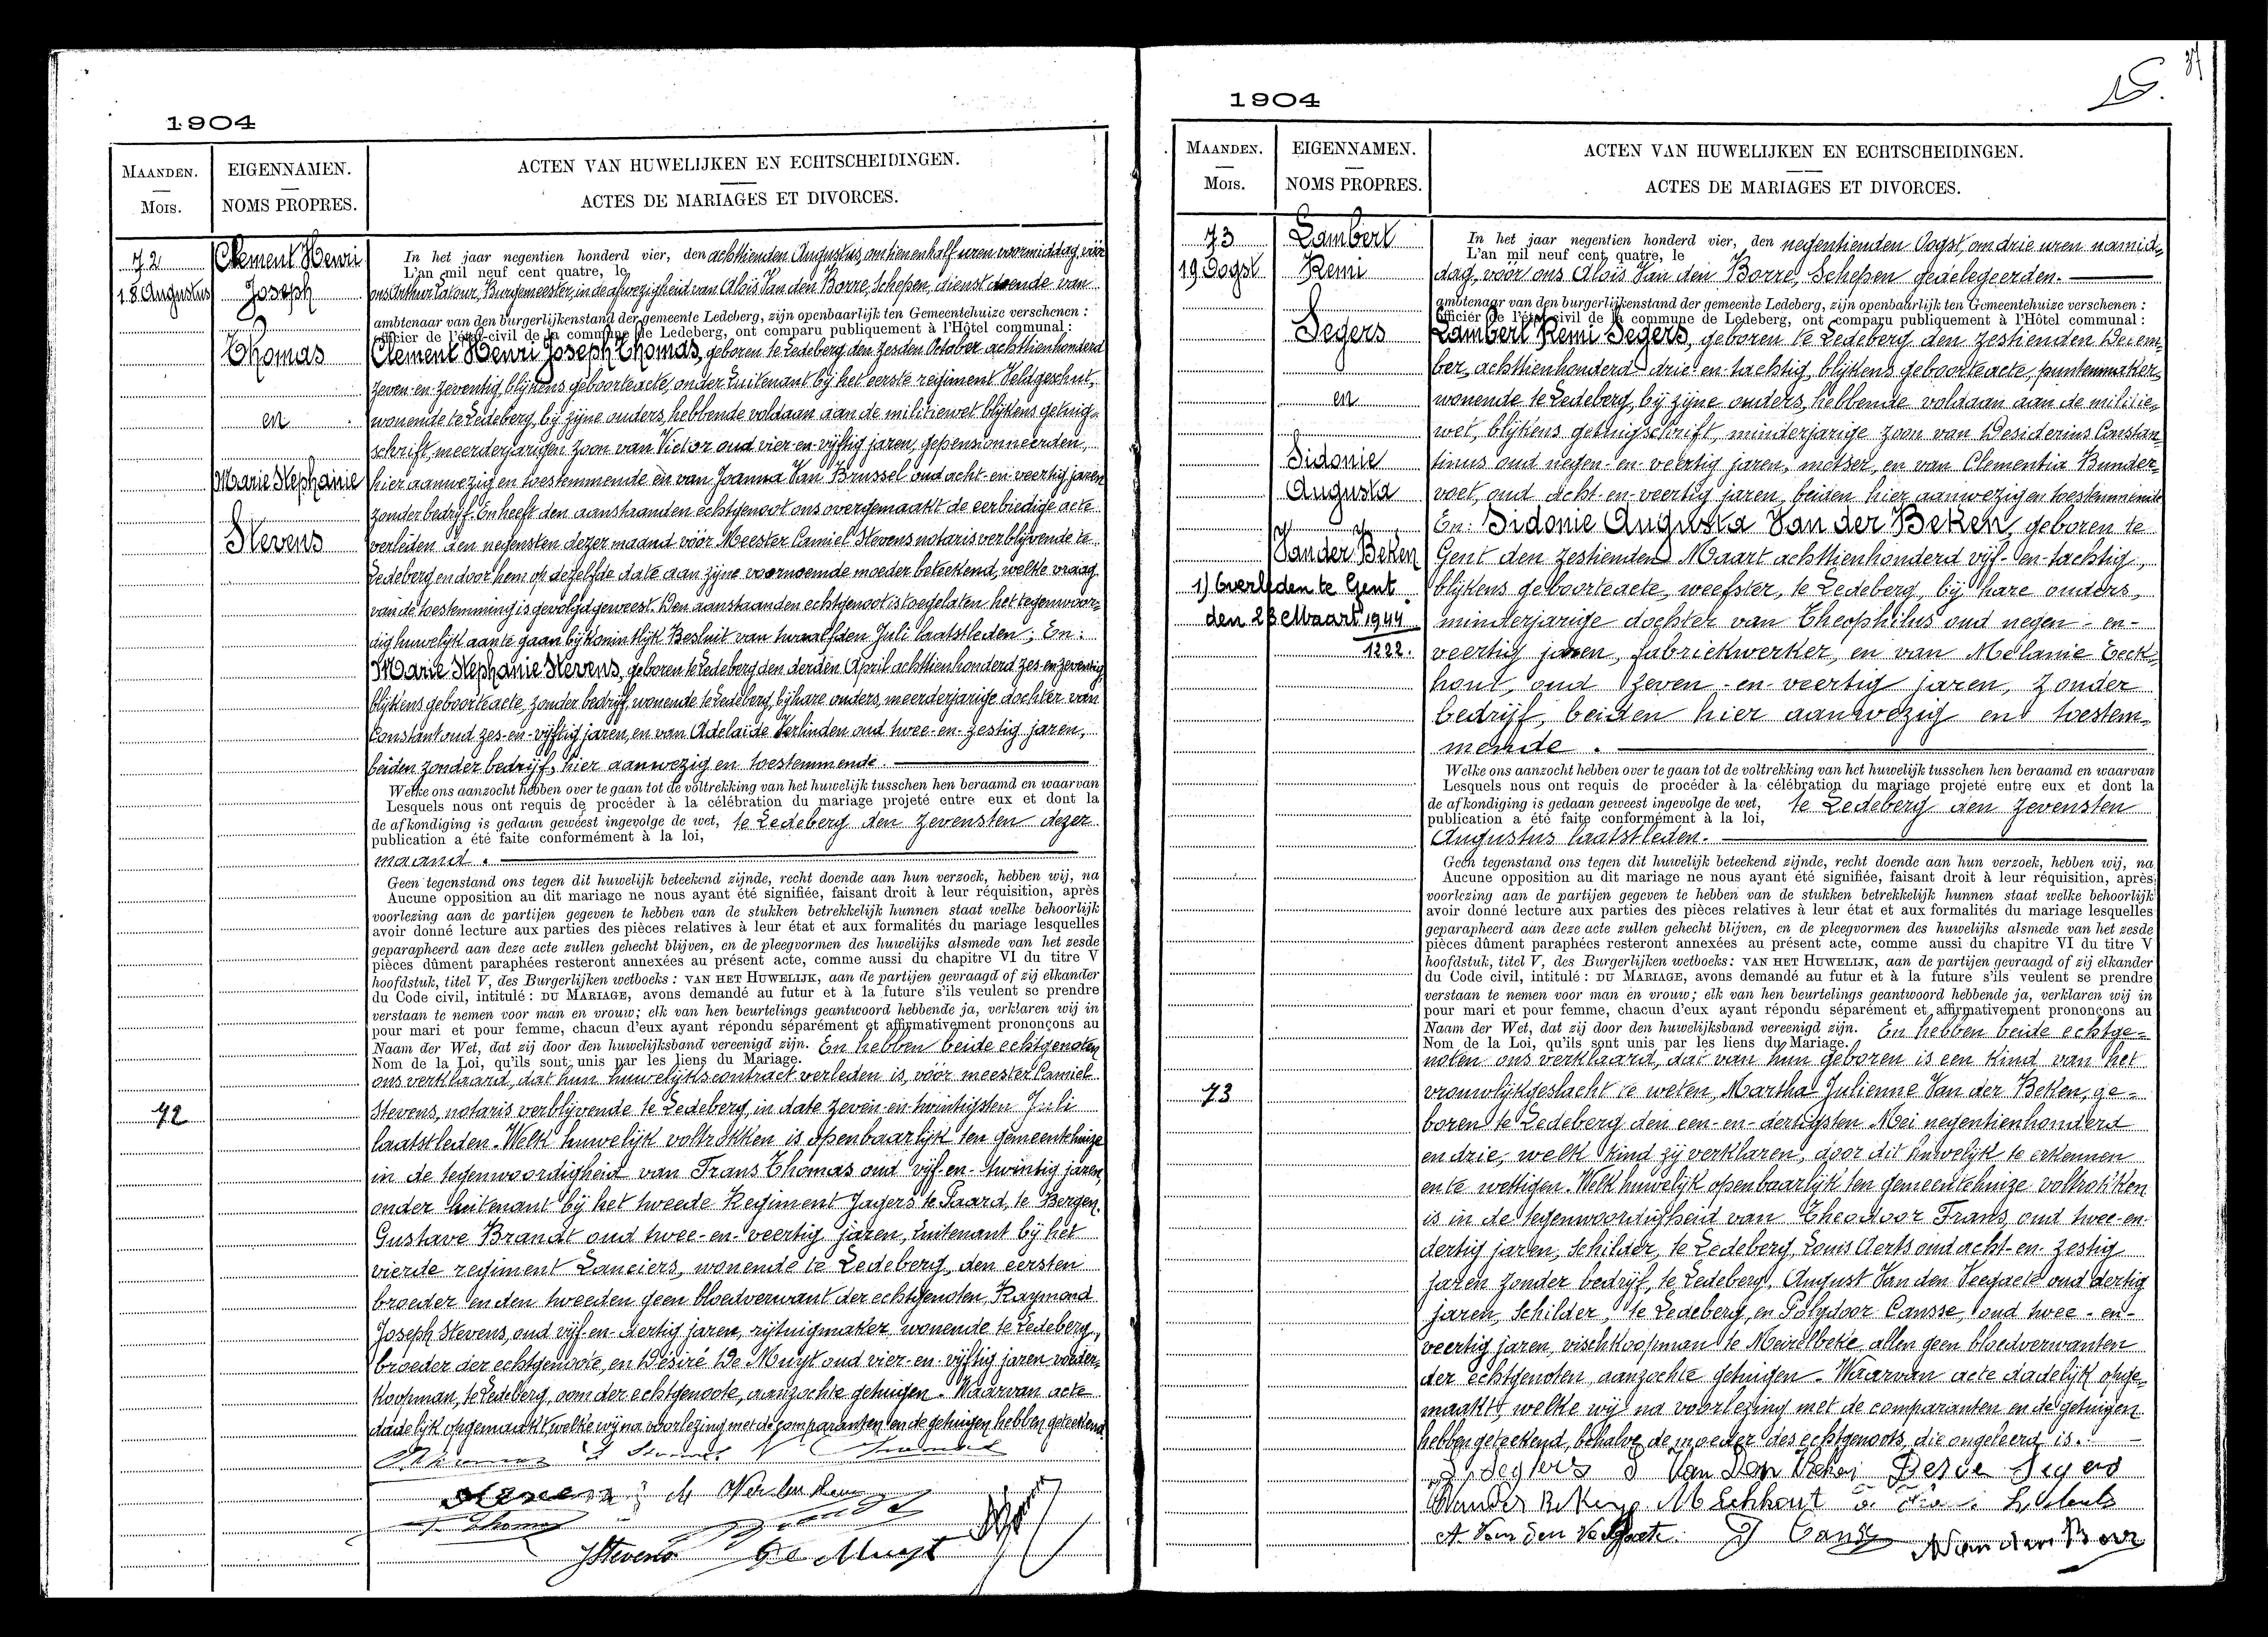 1904
MAANDEN.
Mois.
EIGENNAMEN.
NOMS PROPRES.
ACTEN VAN HUWELIJKEN EN ECHTSCHEIDINGEN.
ACTES DE MARIAGES ET DIVORCES.
72
18 Augustus
Clement Henri
Joseph
Thomas
en
Marie Stephanie
Stevens
72
In het jaar negentien honderd vier, den achttienden Augustus, om tien en half uren voormiddag, vóór
L'an mil neuf cent quatre, le
ons Arthur Latour, Burgemeester, in de afwezigheid van Aloïs Van den Borre, Schepen, dienst doende van
ambtenaar van den burgerlijkenstand der gemeente Ledeberg, zijn openbaarlijk ten Gemeentehuize verschenen :
officier de l'état-civil de la commune de Ledeberg, ont comparu publiquement à l'Hôtel communal :
Clement Henri Joseph Thomas, geboren te Ledeberg den zesden October achttienhonderd
zeven-en-zeventig, blijkens geboorteacte, onder Luitenant bij het eerste regiment Veldgeschut,
wonende te Ledeberg, bij zijne ouders, hebbende voldaan aan de militiewet blijkens getuig-
schrift, meerderjarigen zoon van Victor oud vier-en-vijftig jaren, gepensionneerden,
hier aanwezig en toestemmende en van Joanna Van Brussel oud acht-en-veertig jaren
zonder bedrijf. En heeft den aanstaanden echtgenoot ons overgemaakt de eerbiedige acte
verleden den negensten dezer maand vóór Meester Camiel Stevens notaris verblijvende te
Ledeberg en door hem op dezelfde date aan zijne voornoemde moeder beteekend, welke vraag
van de toestemming is gevolgd geweest. Den aanstaanden echtgenoot is toegelaten het tegenwoor-
dig huwelijk aan te gaan bij koninklijk Besluit van twaalfden Juli laatstleden ; En :
Marie Stephanie Stevens, geboren te Ledeberg den derden April achttienhonderd zes-en-zeventig
blijkens geboorteacte, zonder bedrijf, wonende te Ledeberg, bij hare ouders, meerderjarige dochter van
Constant oud zes-en-vijftig jaren, en van Adelaïde Verlinden oud twee-en-zestig jaren,
beiden zonder bedrijf, hier aanwezig en toestemmende
Welke ons aanzocht hebben over te gaan tot de voltrekking van het huwelijk tusschen hen beraamd en waarvan
Lesquels nous ont requis de procéder à la célébration du mariage projeté entre eux et dont la
de afkondiging is gedaan geweest ingevolge de wet, te Ledeberg den zevensten dezer
publication a été faite conformément à la loi,
maand .
Geen tegenstand ons tegen dit huwelijk beteekend zijnde, recht doende aan hun verzoek, hebben wij, na
Aucune opposition au dit mariage ne nous ayant été signifiée, faisant droit à leur réquisition, après
voorlezing aan de partijen gegeven te hebben van de stukken betrekkelijk hunnen staat welke behoorlijk
avoir donné lecture aux parties des pièces relatives à leur état et aux formalités du mariage lesquelles
geparapheerd aan deze acte zullen gehecht blijven, en de pleegvormen des huwelijks alsmede van het zesde
pièces dûment paraphées resteront annexées au présent acte, comme aussi du chapitre VI du titre V
hoofdstuk, titel V, des Burgerlijken wetboeks : VAN HET HUWELIJK, aan de partijen gevraagd of zij elkander
du Code civil, intitulé : DU MARIAGE, avons demandé au futur et à la future s'ils veulent se prendre
verstaan te nemen voor man en vrouw; elk van hen beurtelings geantwoord hebbende ja, verklaren wij in
pour mari et pour femme, chacun d'eux ayant répondu séparément et affirmativement prononçons au
Naam der Wet, dat zij door den huwelijksband vereenigd zijn. En hebben beide echtgenoten
Nom de la Loi, qu'ils sont unis par les liens du Mariage.
ons verklaard, dat hun huwelijkscontract verleden is, vóór meester Camiel
Stevens, notaris verblijvende te Ledeberg, in date zeven-en-twintigsten Juli
laatstleden. Welk huwelijk voltrokken is openbaarlijk ten gemeentehuize
in de tegenwoordigheid van Frans Thomas oud vijf-en-twintig jaren,
onder luitenant bij het tweede Regiment Jagers te Paard, te Bergen.
Gustave Brandt oud twee-en-veertig jaren, Luitenant bij het
vierde regiment Lanciers, wonende te Ledeberg, den eersten
broeder en den tweeden geen bloedverwant der echtgenoten, Raymond
Joseph Stevens, oud vijf-en-dertig jaren, rijtuigmaker, wonende te Ledeberg,
broeder der echtgenoote, en Désiré De Muyt oud vier-en-vijftig jaren voeder-
koopman, te Ledeberg, oom der echtgenoote, aanzochte getuigen. Waarvan acte
dadelijk opgemaakt, welke wij na voorlezing met de comparanten en de getuigen hebben geteekend
Stevens
De Muyt
1904
MAANDEN.
Mois.
EIGENNAMEN.
NOMS PROPRES.
ACTEN VAN HUWELIJKEN EN ECHTSCHEIDINGEN.
ACTES DE MARIAGES ET DIVORCES.
73
19 Oogst
Lambert
Remi
Segers
en
Sidonie
Augusta
Van der Beken
1) Overleden te Gent
den 23 Maart 1944
1222.
73
In het jaar negentien honderd vier, den negentienden Oogst, om drie uren namid-
L'an mil neuf cent quatre, le
dag, vóór ons Aloïs Van den Borre, Schepen gedelegeerden.
ambtenaar van den burgerlijkenstand der gemeente Ledeberg, zijn openbaarlijk ten Gemeentehuize verschenen :
officier de l'état civil de la commune de Ledeberg, ont comparu publiquement à l'Hôtel communal :
Lambert Remi Segers, geboren te Ledeberg den zestienden Decem-
ber, achttienhonderd drie-en-tachtig, blijkens geboorteacte, puntenmaker,
wonende te Ledeberg, bij zijne ouders, hebbende voldaan aan de militie-
wet, blijkens getuigschrift, minderjarige zoon van Desiderius Constan-
tinus oud negen-en-veertig jaren, metser, en van Clementia Bunder-
voet, oud acht-en-veertig jaren, beiden hier aanwezig en toestemmende
En: Sidonie Augusta Van der Beken, geboren te
Gent den zestienden Maart achttienhonderd vijf-en-tachtig,
blijkens geboorteacte, weefster, te Ledeberg, bij hare ouders,
minderjarige dochter van Theophilus oud negen-en-
veertig jaren, fabriekwerker, en van Melanie Eeck-
hout, oud zeven-en-veertig jaren, zonder
bedrijf, beiden hier aanwezig en toestem-
mende .
Welke ons aanzocht hebben over te gaan tot de voltrekking van het huwelijk tusschen hen beraamd en waarvan
Lesquels nous ont requis de procéder à la célébration du mariage projeté entre eux et dont la
de afkondiging is gedaan geweest ingevolge de wet, te Ledeberg den zevensten
publication a été faite conformément à la loi,
Augustus laatstleden.
Geen tegenstand ons tegen dit huwelijk beteekend zijnde, recht doende aan hun verzoek, hebben wij, na
Aucune opposition au dit mariage ne nous ayant été signifiée, faisant droit à leur réquisition, après
voorlezing aan de partijen gegeven te hebben van de stukken betrekkelijk hunnen staat welke behoorlijk
avoir donné lecture aux parties des pièces relatives à leur état et aux formalités du mariage lesquelles
geparapheerd aan deze acte zullen gehecht blijven, en de pleegvormen des huwelijks alsmede van het zesde
pièces dûment paraphées resteront annexées au présent acte, comme aussi du chapitre VI du titre V
hoofdstuk, titel V, des Burgerlijken wetboeks : VAN HET HUWELIJK, aan de partijen gevraagd of zij elkander
du Code civil, intitulé : DU MARIAGE, avons demandé au futur et à la future s'ils veulent se prendre
verstaan te nemen voor man en vrouw; elk van hen beurtelings geantwoord hebbende ja, verklaren wij in
pour mari et pour femme, chacun d'eux ayant répondu séparément et affirmativement prononçons au
Naam der Wet, dat zij door den huwelijksband vereenigd zijn. En hebben beide echtge-
Nom de la Loi, qu'ils sont unis par les liens du Mariage.
noten ons verklaard, dat van hun geboren is een kind van het
vrouwlijkgeslacht te weten, Martha Julienne Van der Beken, ge-
boren te Ledeberg den een-en-dertigsten Mei negentienhonderd
en drie, welk kind zij verklaren, door dit huwelijk te erkennen
en te wettigen. Welk huwelijk openbaarlijk ten gemeentehuize voltrokken
is in de tegenwoordigheid van Theodoor Frans, oud twee-en-
dertig jaren, schilder, te Ledeberg, Louis Aerts oud acht-en-zestig
jaren zonder bedrijf, te Ledeberg, August Van den Veegaete oud dertig
jaren, schilder, te Ledeberg, en Polydoor Cansse, oud twee-en-
veertig jaren, vischkoopman te Meirelbeke allen geen bloedverwanten
der echtgenoten, aanzochte getuigen. Waarvan acte dadelijk opge-
maakt, welke wij na voorlezing met de comparanten en de getuigen
hebben geteekend, behalve de moeder des echtgenoots, die ongeleerd is.